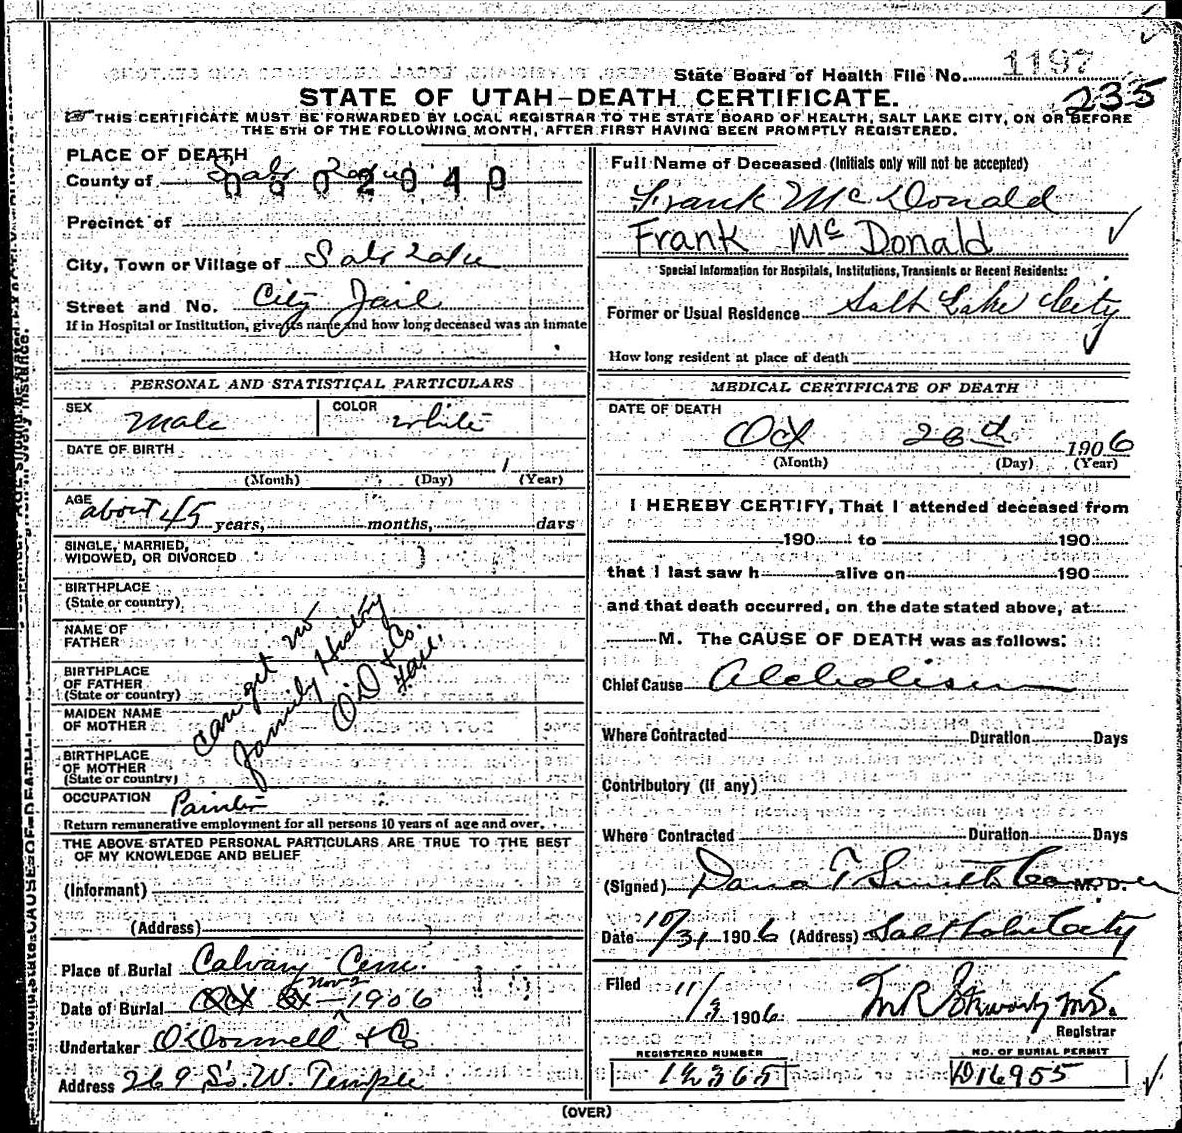 State Board of Health File No. 1197
235
STATE OF UTAH-DEATH CERTIFICATE.
THIS CERTIFICATE MUST BE FORWARDED BY LOCAL REGISTRAR TO THE STATE BOARD OF HEALTH, SALT LAKE CITY, ON OR BEFORE
THE 5TH OF THE FOLLOWING MONTH, AFTER FIRST HAVING BEEN PROMPTLY REGISTERED.
PLACE OF DEATH
County of Salt Lake
Precinct of
City, Town or Village of Salt Lake
Street and No. City Jail
If in Hospital or Institution, give its name and how long deceased was an inmate
PERSONAL AND STATISTICAL PARTICULARS
SEX Male COLOR White
DATE OF BIRTH
(Month) (Day) (Year)
AGE about 45 years, months, days
SINGLE, MARRIED,
WIDOWED, OR DIVORCED
BIRTHPLACE
(State or country)
NAME OF
FATHER
BIRTHPLACE
OF FATHER
(State or country)
MAIDEN NAME
OF MOTHER
BIRTHPLACE
OF MOTHER
(State or country)
can get no
Family History
O'D & Co.
OCCUPATION Painter
Return remunerative employment for all persons 10 years of age and over.
THE ABOVE STATED PERSONAL PARTICULARS ARE TRUE TO THE BEST
OF MY KNOWLEDGE AND BELIEF
(Informant)
(Address)
Place of Burial Calvary Cem.
Date of Burial Nov 2 1906
Undertaker O'Donnell & Co
Address 269 So. W. Temple
Full Name of Deceased (Initials only will not be accepted)
Frank McDonald
Frank Mc Donald
Special Information for Hospitals, Institutions, Transients or Recent Residents:
Former or Usual Residence Salt Lake City
How long resident at place of death
MEDICAL CERTIFICATE OF DEATH
DATE OF DEATH
Oct 1906
(Month) (Day) (Year)
I HEREBY CERTIFY, That I attended deceased from
190 to 190
that I last saw h alive on 190
and that death occurred, on the date stated above, at
M. The CAUSE OF DEATH was as follows:
Chief Cause Alcholism
Where Contracted Duration Days
Contributory (if any)
Where Contracted Duration Days
(Signed) Dana T Smith Coroner M. D.
Date 10/31 1906 (Address) Salt Lake City
Filed 11/3 1906 M.D.
Registrar
REGISTERED NUMBER
12365
NO. OF BURIAL PERMIT
D16955
(OVER)